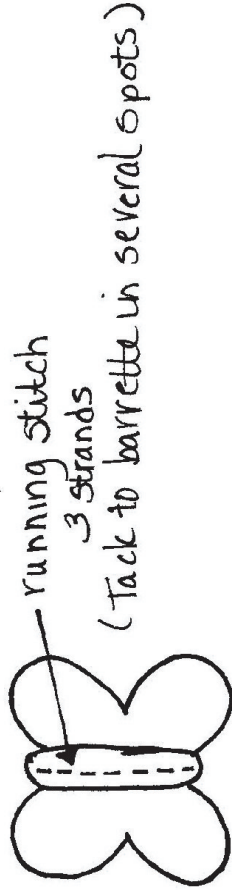 running stitch
3 strands
(Tack to barrette in several spots)